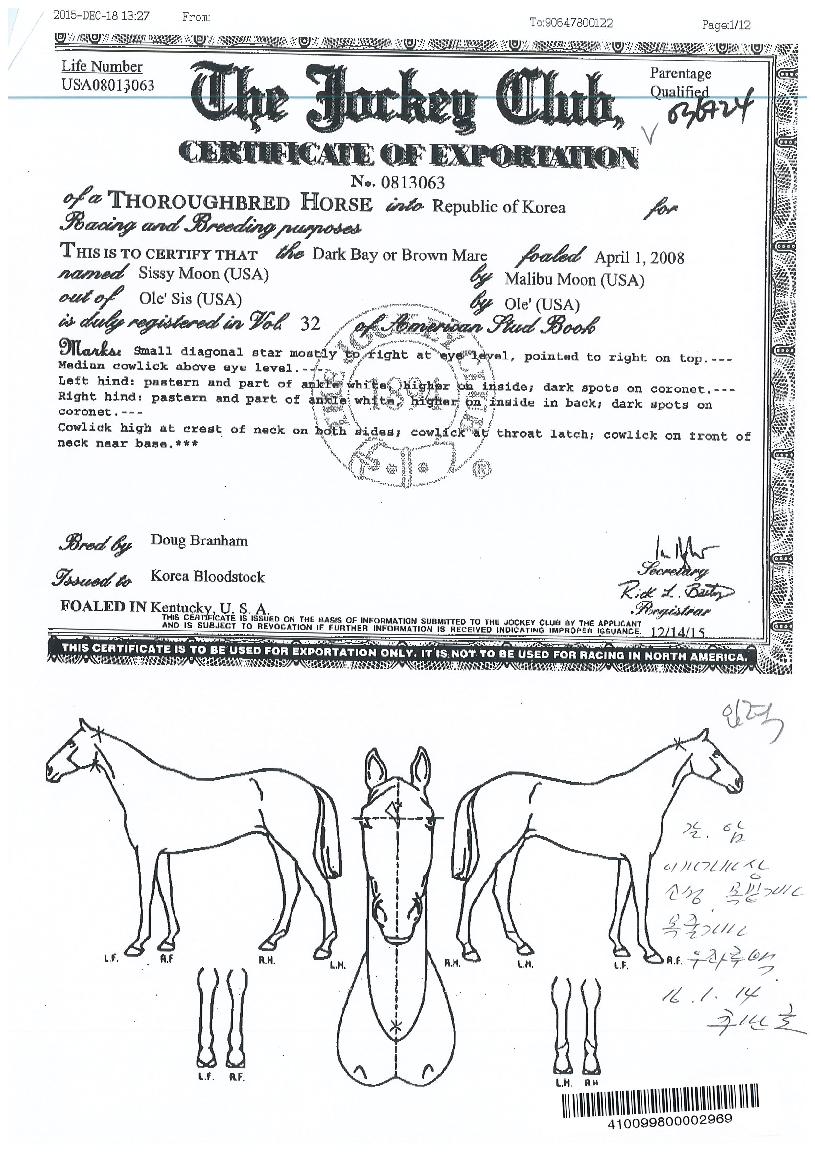 2015-DEC-18 13:27 From: To:90647800122 Page:1/12
Life Number
USA08013063
The Jockey Club,
Parentage
Qualified
CERTIFICATE OF EXPORTATION
No. 0813063
of a THOROUGHBRED HORSE into Republic of Korea for
Racing and Breeding purposes
THIS IS TO CERTIFY THAT the Dark Bay or Brown Mare foaled April 1, 2008
named Sissy Moon (USA) by Malibu Moon (USA)
out of Ole' Sis (USA) by Ole' (USA)
is duly registered in Vol. 32 of American Stud Book
Marks: Small diagonal star mostly to right at eye level, pointed to right on top.---
Median cowlick above eye level.---
Left hind: pastern and part of ankle white, higher on inside; dark spots on coronet.---
Right hind: pastern and part of ankle white, higher on inside in back; dark spots on
coronet.---
Cowlick high at crest of neck on both sides; cowlick at throat latch; cowlick on front of
neck near base.***
THE JOCKEY CLUB
1894
®
Bred by Doug Branham
Issued to Korea Bloodstock
Secretary
Registrar
FOALED IN Kentucky, U. S. A.
THIS CERTIFICATE IS ISSUED ON THE BASIS OF INFORMATION SUBMITTED TO THE JOCKEY CLUB BY THE APPLICANT
AND IS SUBJECT TO REVOCATION IF FURTHER INFORMATION IS RECEIVED INDICATING IMPROPER ISSUANCE. 12/14/15
THIS CERTIFICATE IS TO BE USED FOR EXPORTATION ONLY. IT IS NOT TO BE USED FOR RACING IN NORTH AMERICA.
갈. 암
L.F. R.F R.H. L.H. R.H. L.H. L.F. R.F.
16. 1. 14
L.F. R.F. L.H. R.H
410099800002969